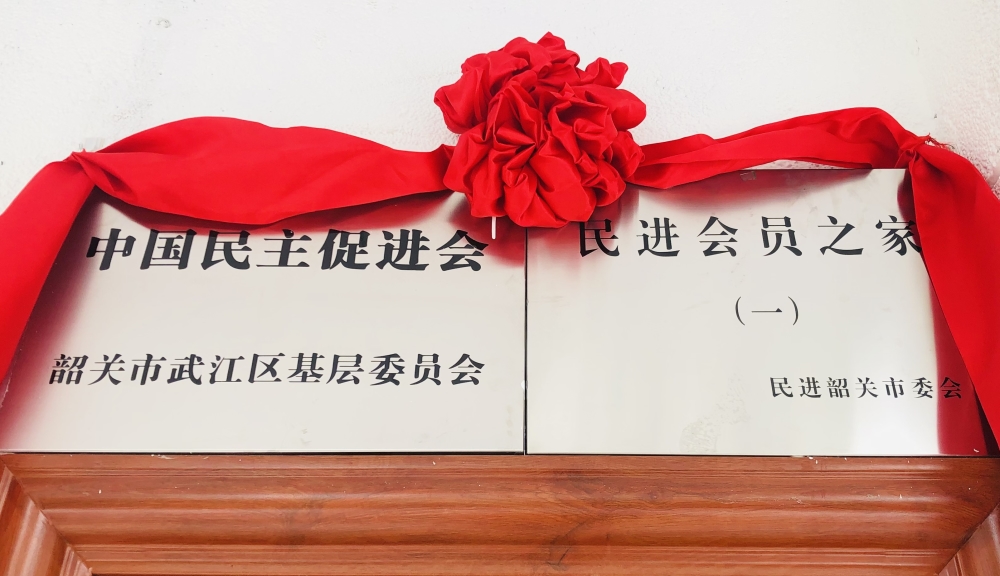 中国民主促进会
韶关市武江区基层委员会
民进会员之家
(一)
民进韶关市委会